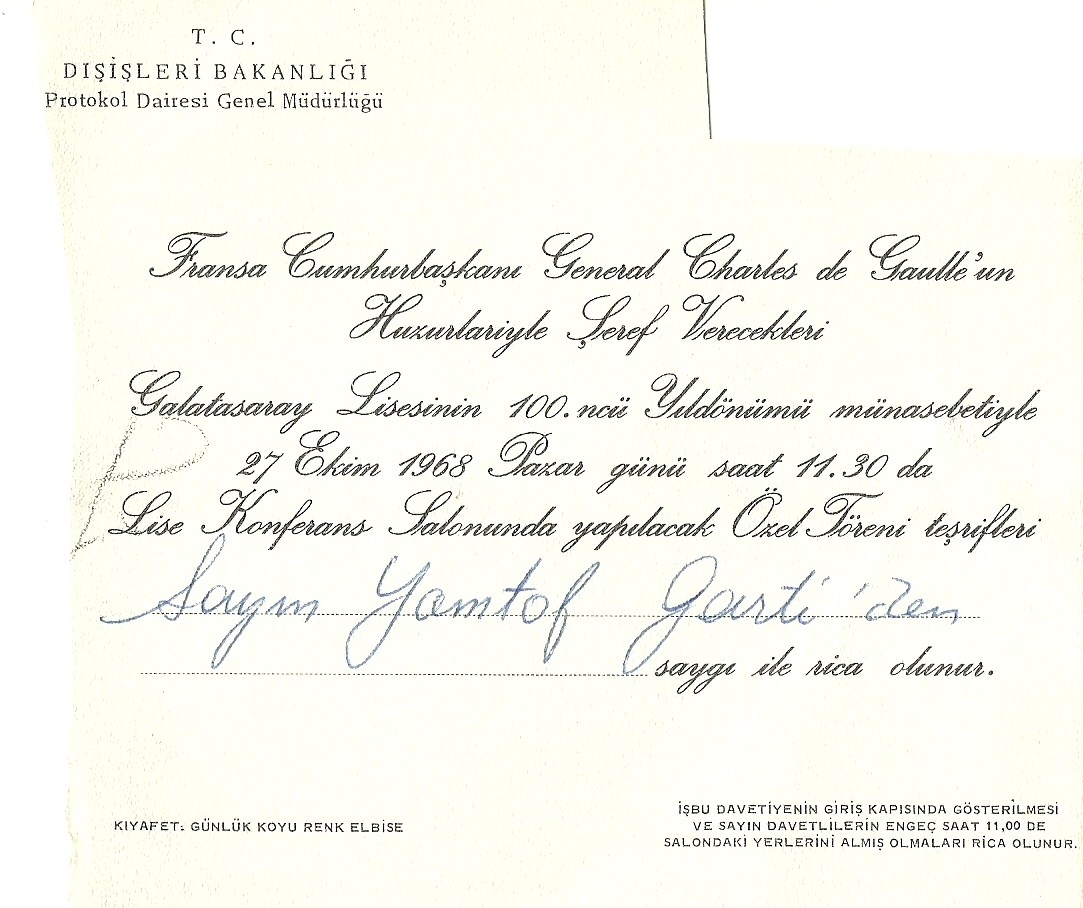 T. C.
DIŞİŞLERİ BAKANLIĞI
Protokol Dairesi Genel Müdürlüğü
Fransa Cumhurbaşkanı General Charles de Gaulle'un
Huzurlariyle Şeref Verecekleri
Galatasaray Lisesinin 100.ncü Yıldönümü münasebetiyle
27 Ekim 1968 Pazar günü saat 11.30 da
Lise Konferans Salonunda yapılacak Özel Töreni teşrifleri
Sayın Yomtof Garti'den
saygı ile rica olunur.
KIYAFET: GÜNLÜK KOYU RENK ELBİSE
İŞBU DAVETİYENİN GİRİŞ KAPISINDA GÖSTERİLMESİ
VE SAYIN DAVETLİLERİN ENGEÇ SAAT 11,00 DE
SALONDAKİ YERLERİNİ ALMIŞ OLMALARI RİCA OLUNUR.